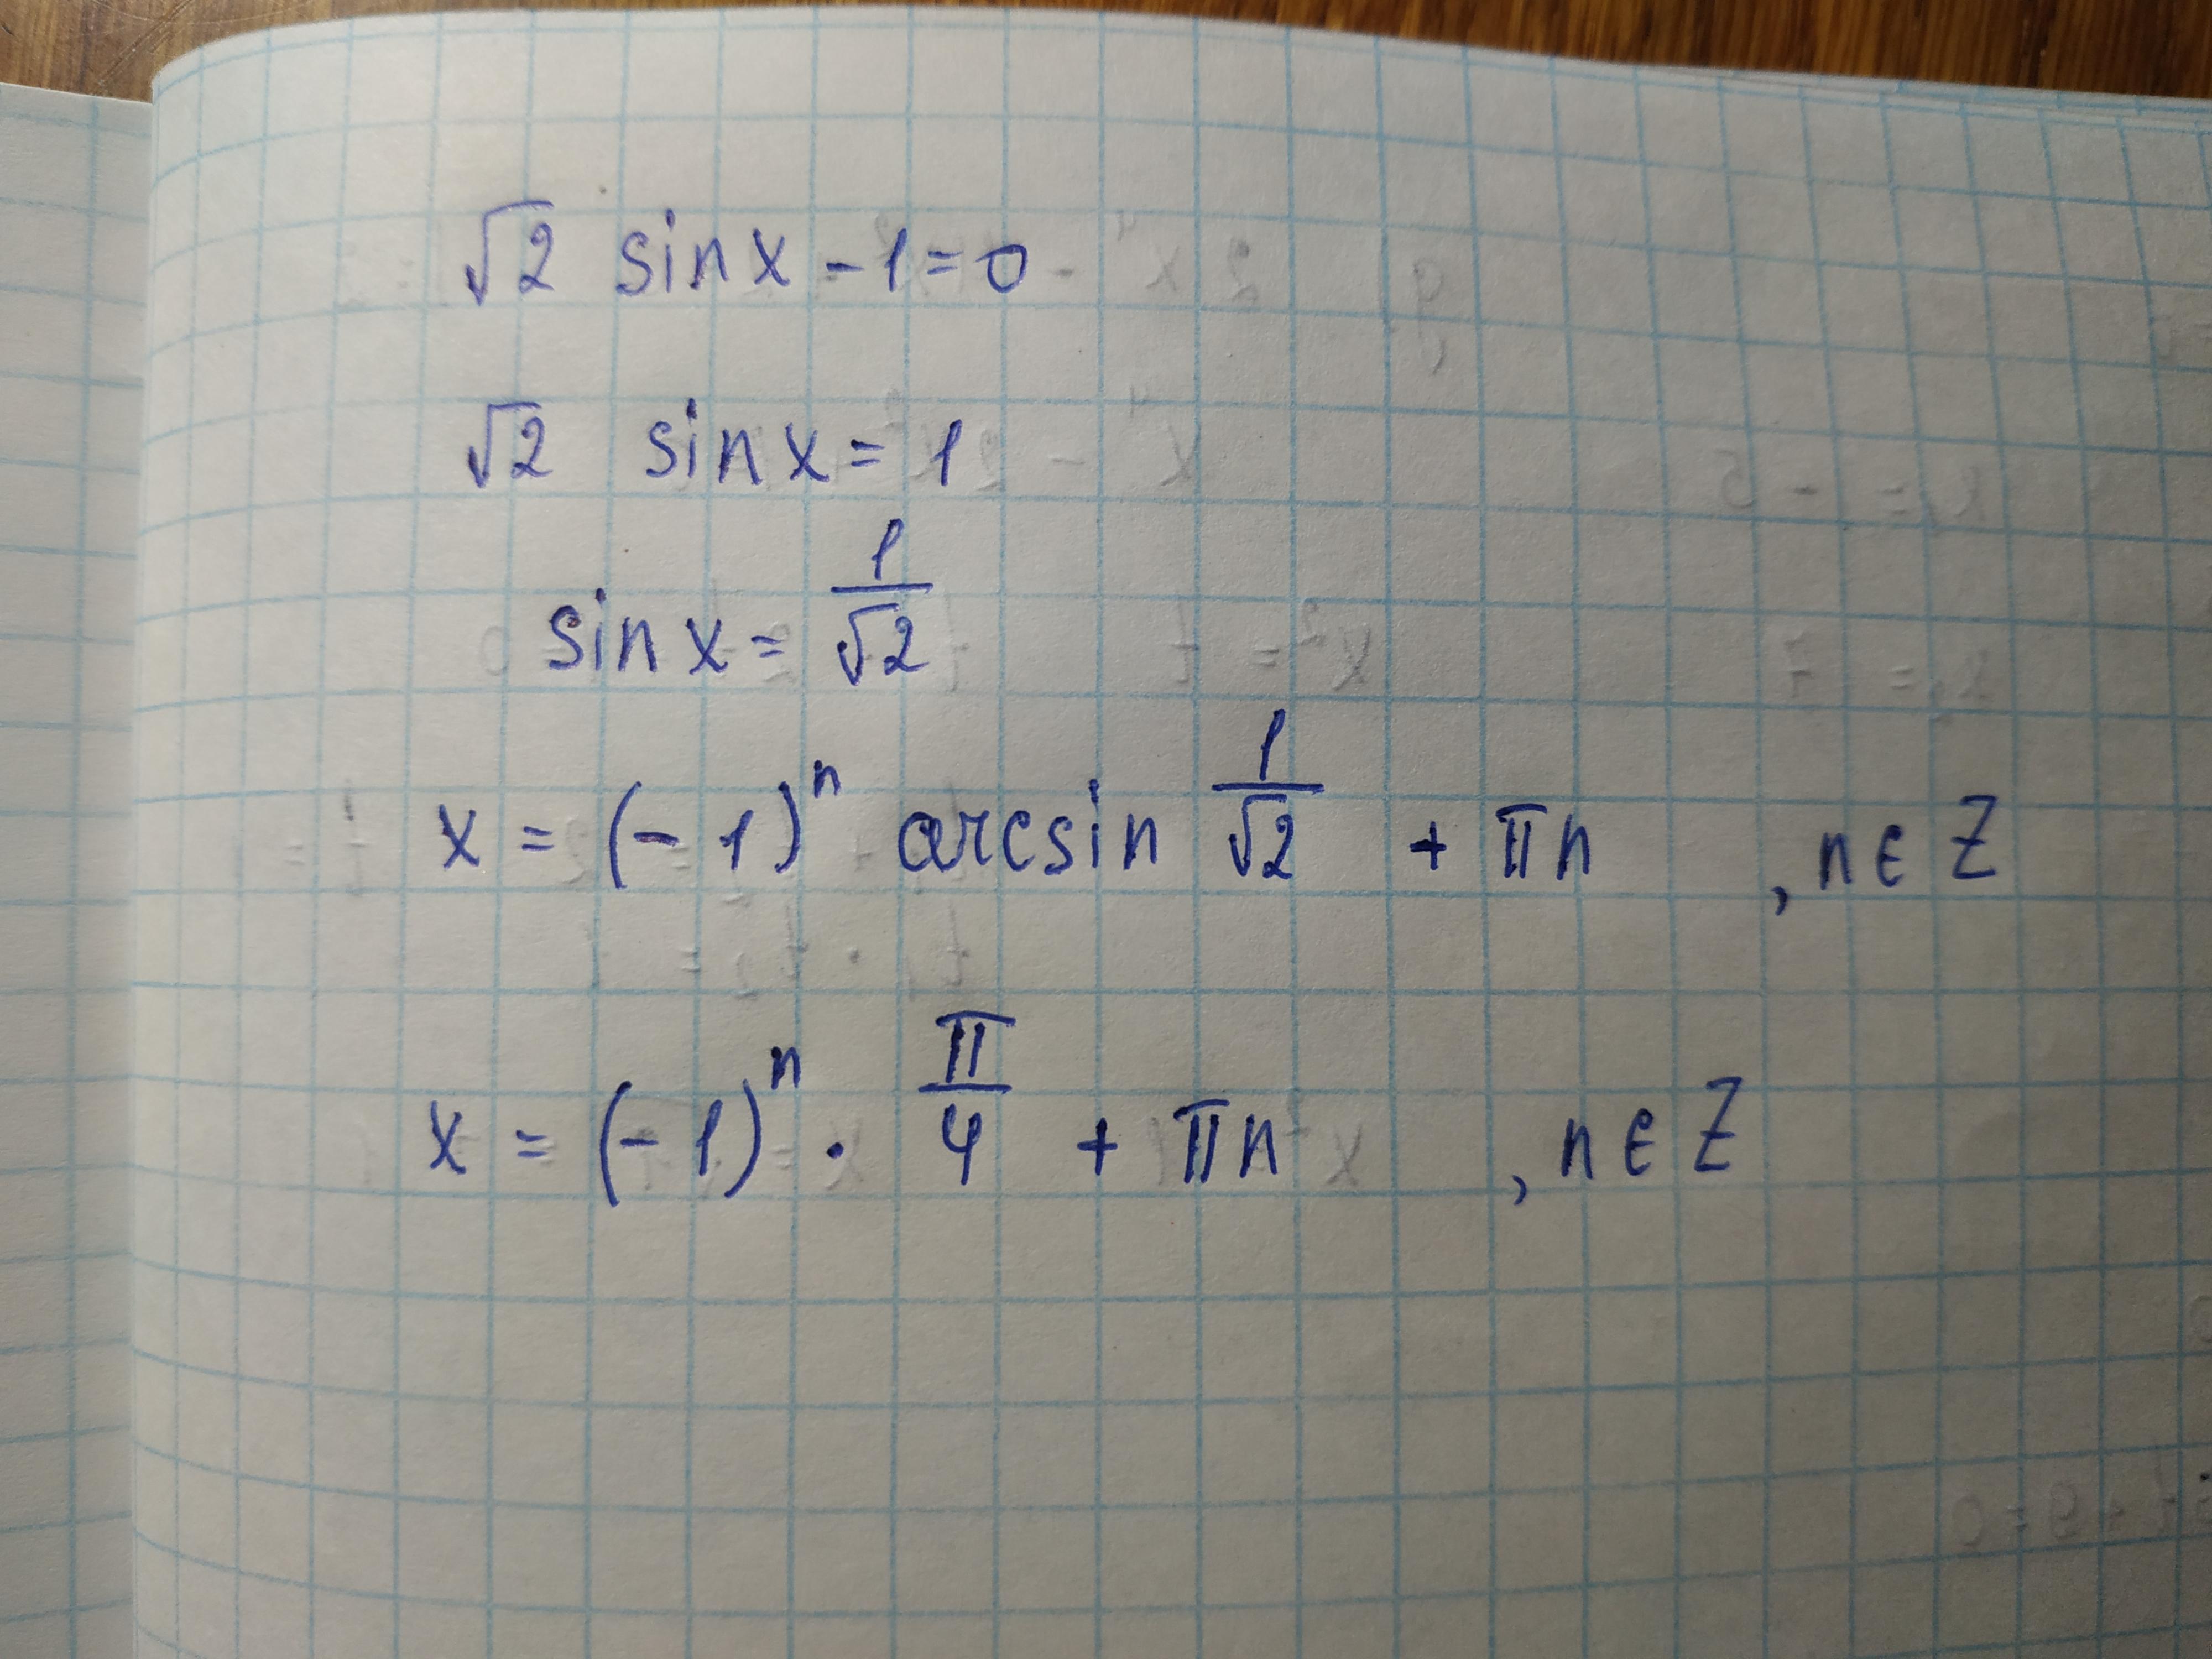 √2 sin x - 1 = 0
√2 sin x = 1
sin x = 1/√2
x = (-1)ⁿ arcsin 1/√2 + πn , n ∈ Z
x = (-1)ⁿ · π/4 + πn , n ∈ Z